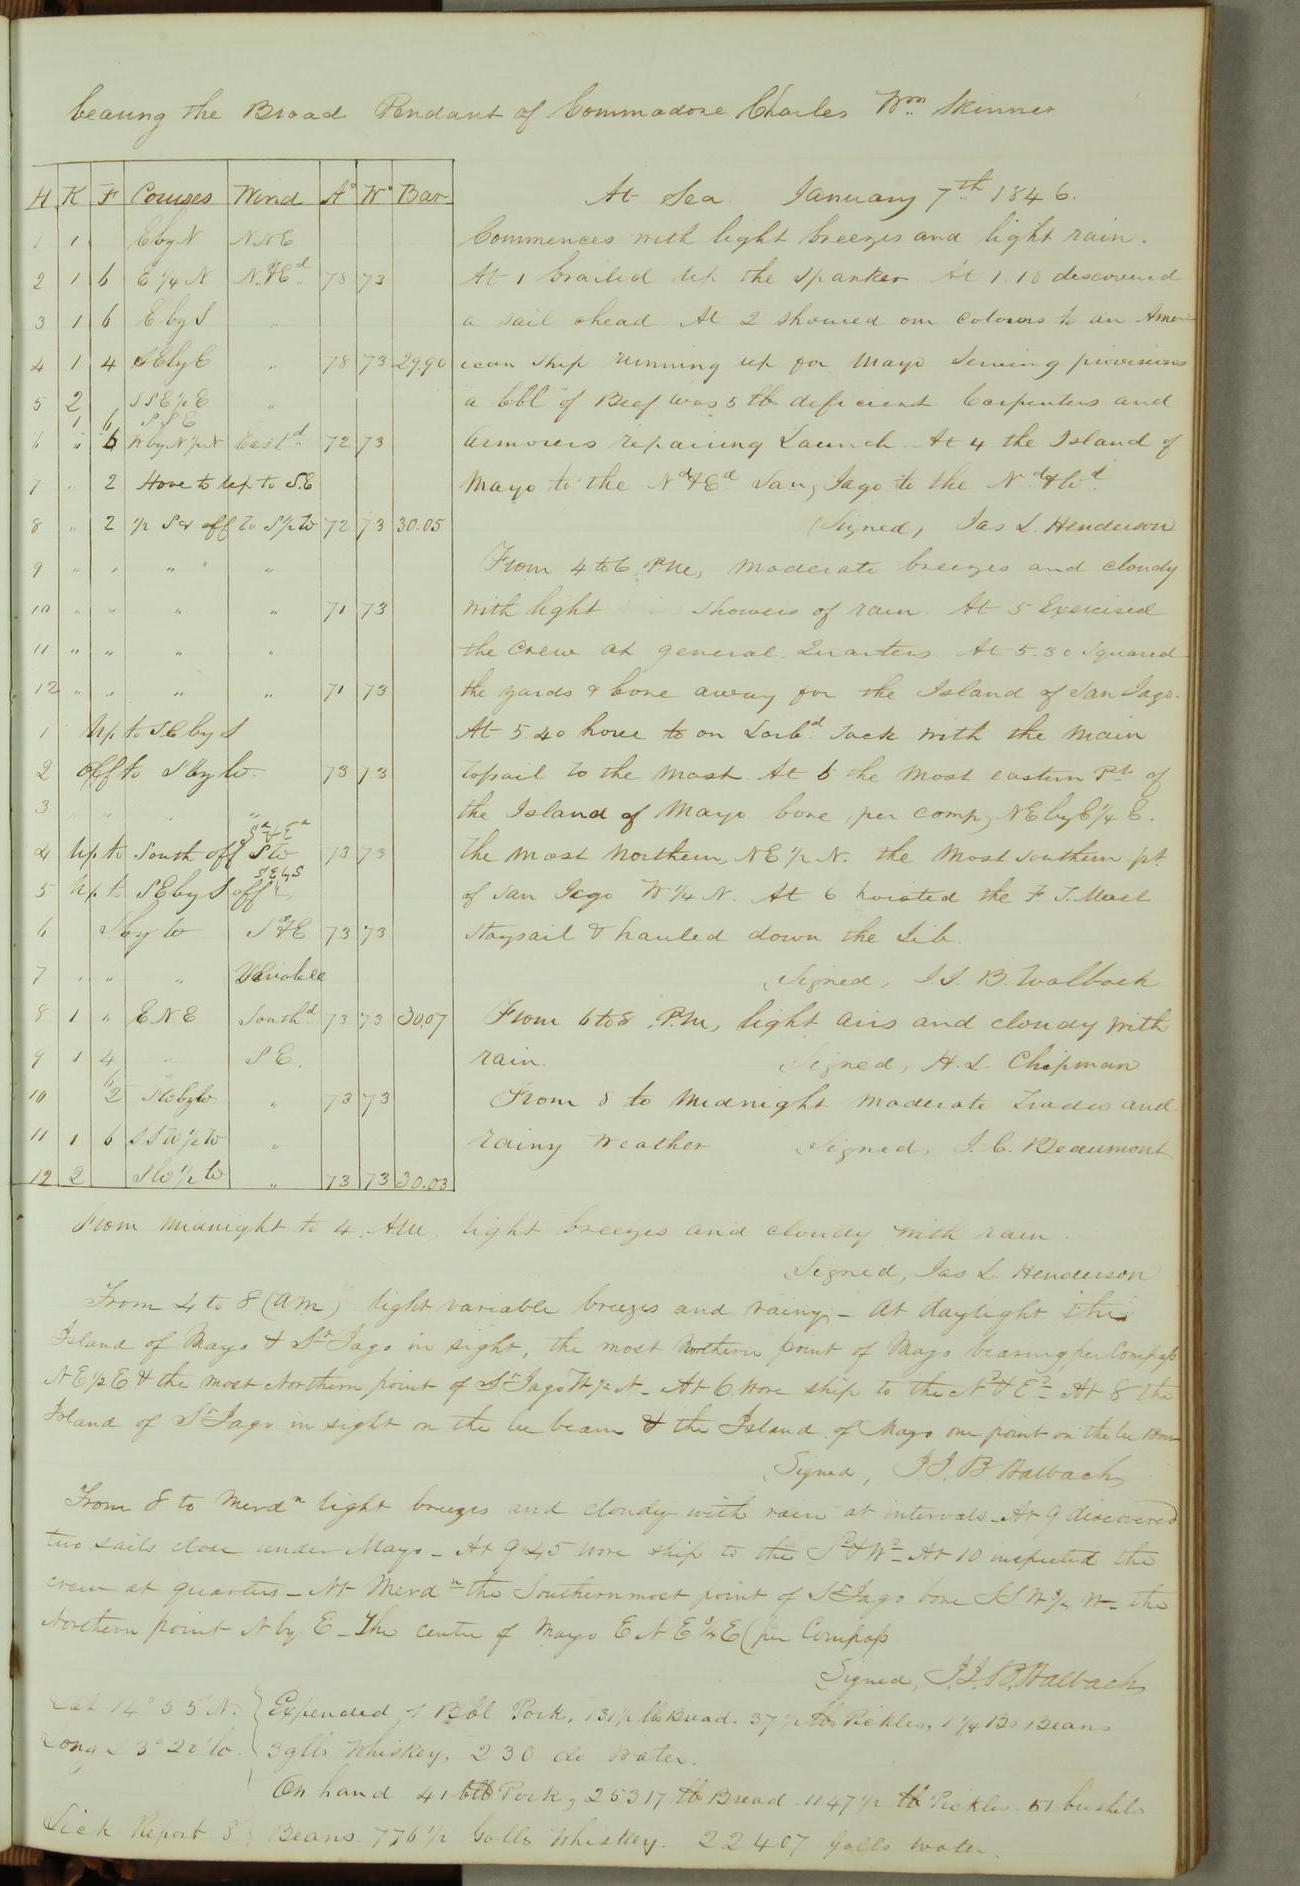 bearing the Broad Pendant of Commodore Charles Wm. Skinner
H K F Courses Wind A° W° Bar
At Sea January 7th 1846.
1 1 E by N NNE
Commences with light breezes and light rain.
2 1 6 E 1/4 N Nd & Ed 78 73
At 1 brailed up the spanker At 1.10 discovered
3 1 6 E by S "
a sail ahead At 2 showed our colours to an Amer-
4 1 4 SE by E " 78 73 29.90
ican ship running up for Mayo Serving provisions
5 2 SSE 1/2 E "
a bbl of Beef was 5 lb deficient Carpenters and
1 6 SSE
6 " 6 W by N 1/2 N Eastd 72 73
Armorers repairing Launch At 4 the Island of
7 " 2 Hove to up to S.E
Mayo to the Nd & Ed San Jago to the Nd & Wd
8 " 2 1/2 S & off to S 1/2 W 72 73 30.05
(Signed, Jas L. Henderson
9 " " " "
From 4 to 6 P.M, moderate breezes and cloudy
10 " " " " 71 73
with light showers of rain At 5 Exercised
11 " " " "
the crew at general Quarters. At 5.30 squared
12 " " " " 71 73
the yards & bore away for the Island of San Jago.
1 Up to SE by S
At 5.40 hove to on Larbd Tack with the main
2 off to S by W. 73 73
topsail to the mast. At 6 the most eastern Pt of
3 " " " "
the Island of Mayo bore per comp, NE by E 1/4 E.
Sd & Ed
4 Up to South off SW 73 73
the most Northern, NE 1/2 N. the most southern pt.
SE by S
5 Up to SE by S off "
of San Jago W 1/4 N. At 6 hoisted the F. T. Mast
6 S by W Sd & E 73 73
Staysail & hauled down the Jib.
7 " " " Variable
Signed, J. J. B. Walbach
8 1 " ENE Southd 73 73 30.07
From 6 to 8 P.M, light airs and cloudy with
9 1 4 " SE.
rain. Signed, H. L. Chipman
6
10 2 SW by W " 73 73
From 8 to Midnight moderate Trades and
11 1 6 SSW 1/2 W "
rainy weather Signed, J. C. Beaumont
12 2 SW 1/2 W " 73 73 30.03
From midnight to 4. AM, light breezes and cloudy with rain.
Signed, Jas L. Henderson
From 4 to 8 (AM) light variable breezes and rainy - At daylight the
Island of Mayo & St Jago in sight, the most Northern point of Mayo bearing, per Compass
NE 1/2 E & the most Northern point of St Jago W 1/2 N - At 6 wore ship to the Nd & Ed - At 8 the
Island of St Jago in sight on the lee beam & the Island of Mayo one point on the lee Bow
Signed, J. J. B Walbach
From 8 to Merdn light breezes and cloudy with rain at intervals - At 9 discovered
two sails close under Mayo - At 9.45 wore ship to the Sd & Wd - At 10 inspected the
crew at quarters - At Merdn the Southernmost point of St Jago bore SSW 1/2 W - the
Northern point N by E - The center of Mayo ENE 3/4 E (per Compass
Signed, J. J. B. Walbach
Lat 14° 55' N. Expended 1 Bbl Pork, 131 1/2 lb Bread. 37 1/2 lbs Pickles, 1 1/4 Bs Beans
Long 23° 20' W. 3 galls Whiskey. 230 do Water.
On hand 41 bbl Pork, 25317 lb Bread 1147 1/2 lb Pickles 51 bushels
Sick Report 8 Beans. 776 1/2 Galls Whiskey. 22407 Galls water.